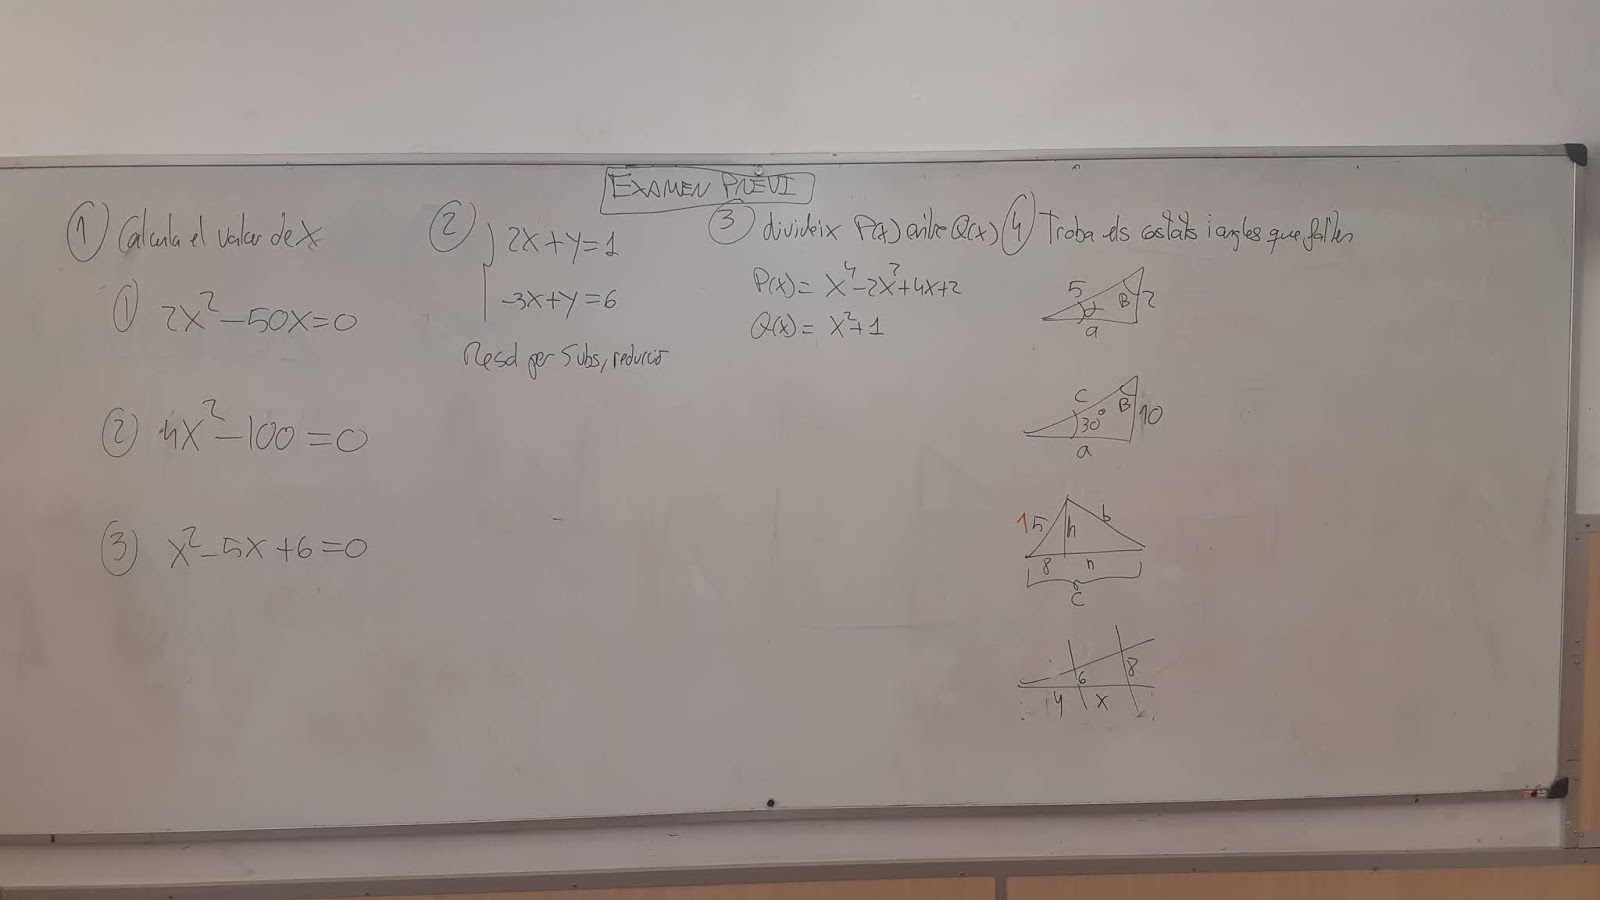 EXAMEN PREVI
① Calcula el valor de x
① 2x²-50x=0
② 4x²-100=0
③ x²-5x+6=0
② 2x+y=1
-3x+y=6
Resol per Subs, reducció
③ divideix P(x) entre Q(x)
P(x)= x⁴-2x²+4x+2
Q(x)= x²+1
④ Troba els costats i angles que falten
5 α B 2
a
C 30° B 10
a
15 h b
8 n
C
6 8
4 x